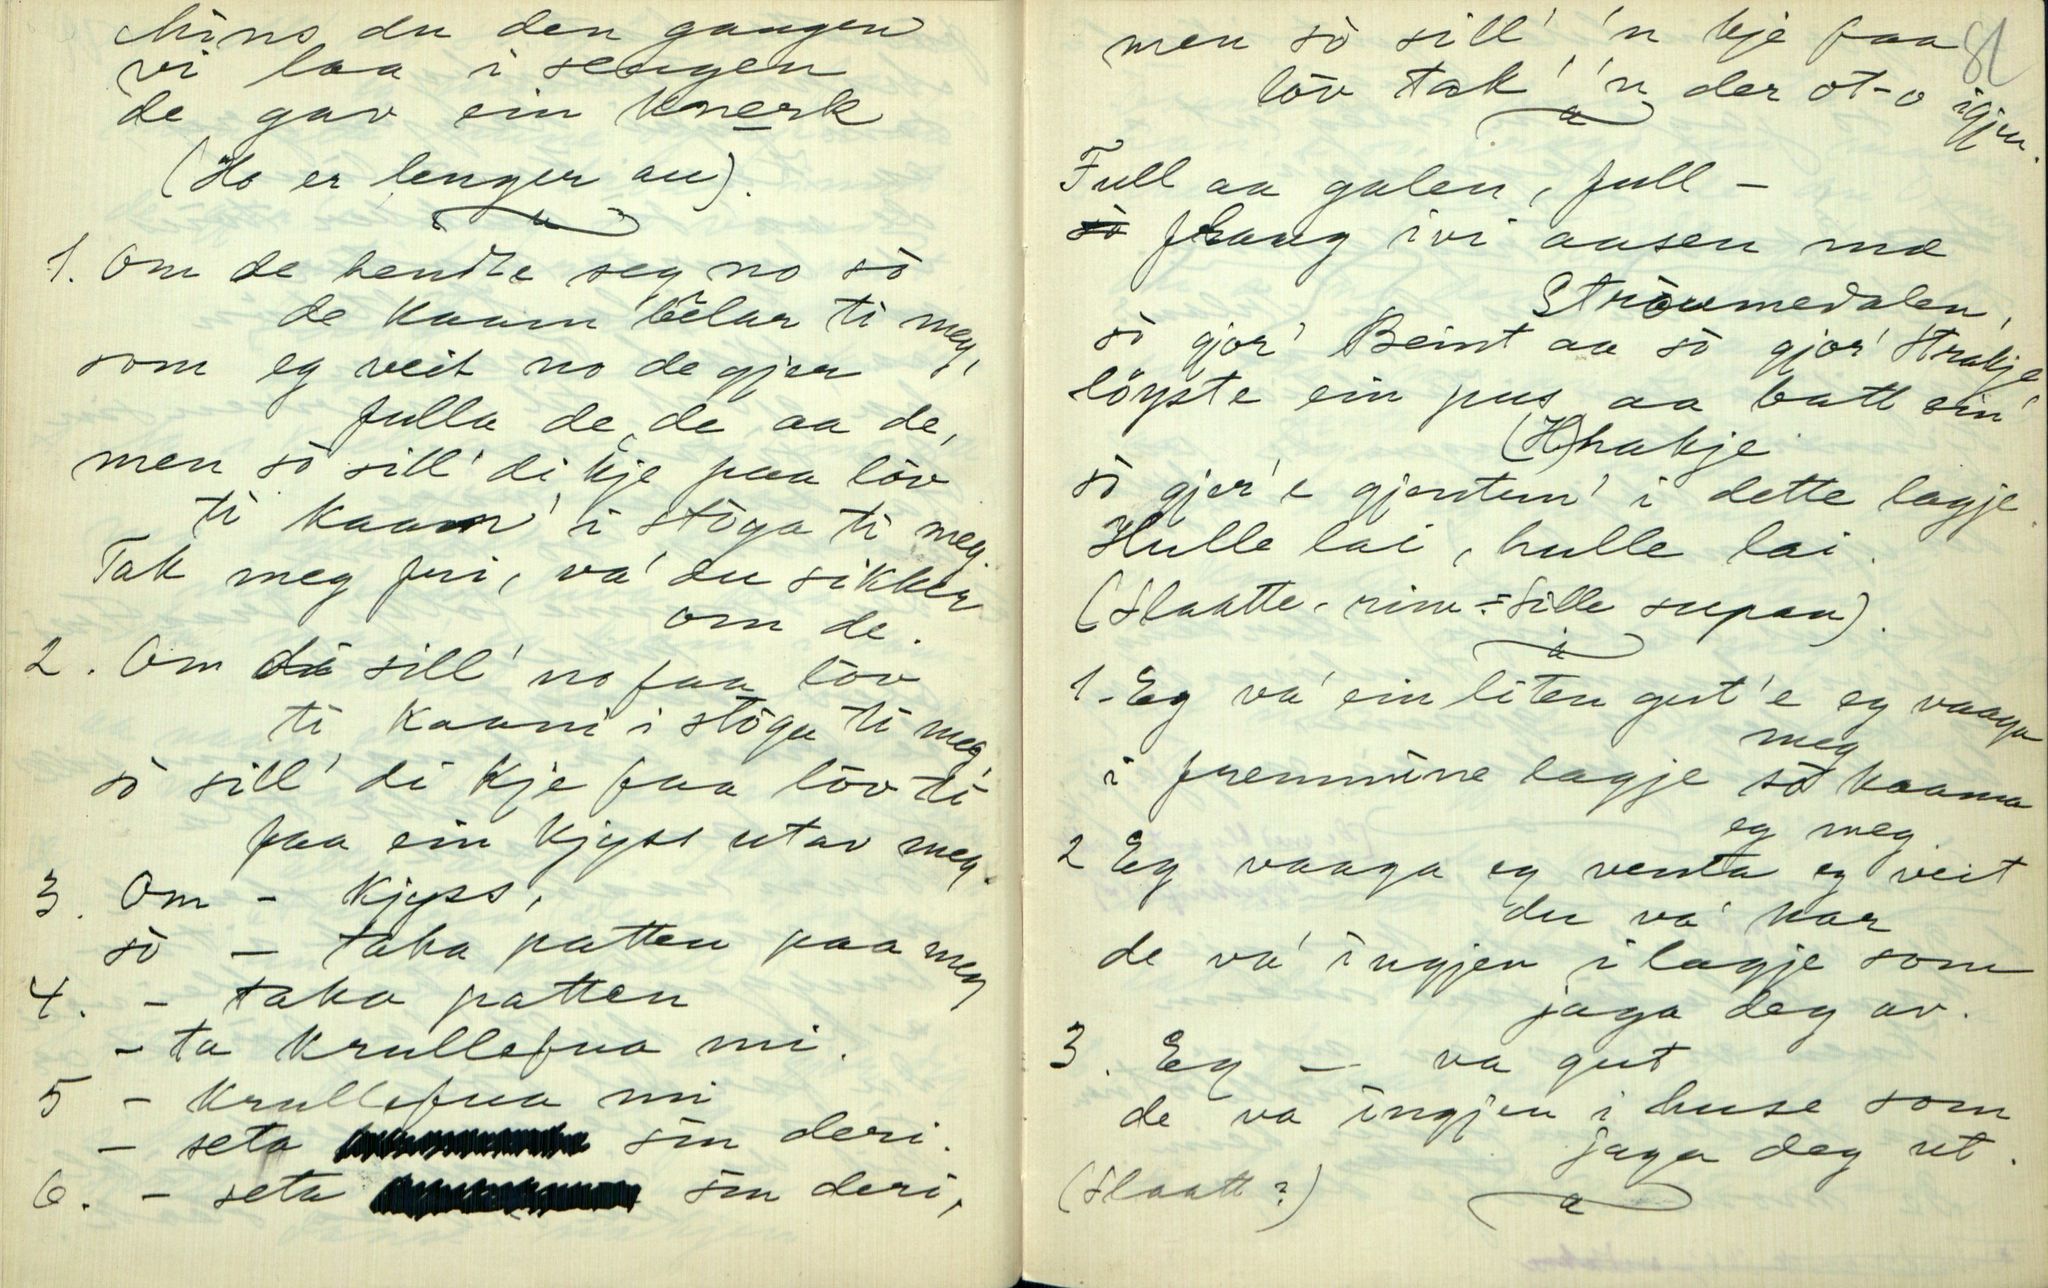 Mins du den gaangen
vi laa i sengen
de gav ein knerk
(Ho er lenger au).
1. Om de hendte seg no sò
de kaam bêlar ti meg,
som eg veit no de gjer
fulla de, de aa de,
men sò sill' di kje faa löv
ti kaam' i stöga ti meg.
Tak meg fri, va' du sikker
om de.
2. Om di sill' no faa löv
ti kaam i stöga ti meg,
sò sill' di kje faa löv ti
faa ein kjyss utav meg.
3. Om - kjyss,
sò — taka patten paa meg
4. - taka patten
- ta krullefua mi.
5 - krullefua mi
- seta sin deri.
6. - seta sin deri,
81
men sò sill' 'n kje faa
löv tak' 'n der ot-o igjen.
Full aa galen, full -
sprang ivi aasen mæ
Straumedalen,
sò gjor' Beint aa sò gjor' Strakje
löyste ein pus aa batt sin'
(H)hakje
sò gjer'e gjentun' i dette lagje.
Hulle lai, hulle lai.
(Slaatte-rim = Sille supan).
1. Eg va' ein liten gut'e eg vaaga
meg
i fremmine lagje sò kaama
eg meg
2 Eg vaaga eg venta eg veit
du va' kar
de va' ingjen i lagje som
jaga deg av.
3. Eg — va gut
de va ingjen i huse som
jaga deg ut.
(Slaatt?)